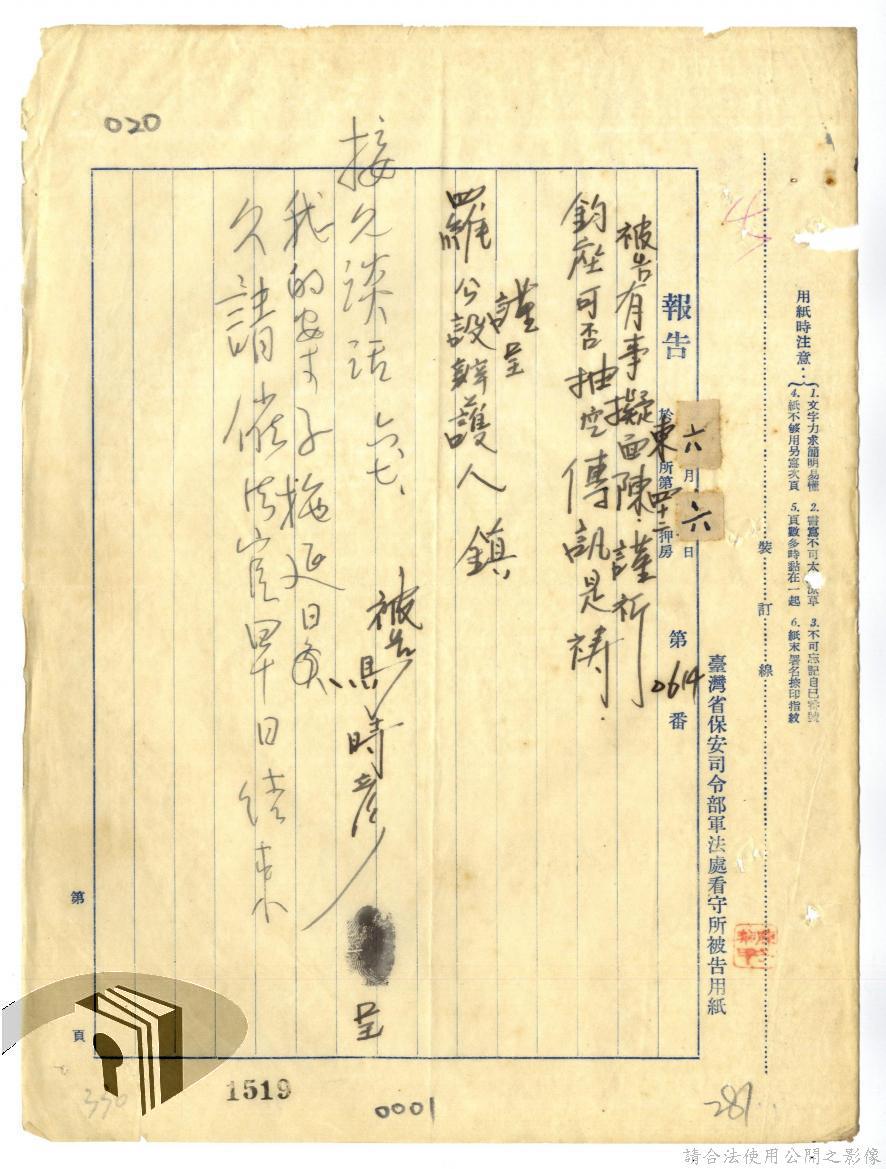 020
用紙時注意：
1. 文字力求簡明易懂
2. 書寫不可太潦草
3. 不可忘記自己番號
4. 紙不够用另寫次頁
5. 頁數多時黏在一起
6. 紙末署名捺印指紋
裝訂線
臺灣省保安司令部軍法處看守所被告用紙
報告
六月六日
於東所第四十二押房
第0614番
被告有事擬面陳．謹祈
鈞座可否抽空傳訊是禱．
謹呈
羅公設辯護人 鎮
被告 時彥 呈
接見談話 六、七、
我的案子拖延日久
久請催法官早日結束
第 頁
1519
0001
330
287
請合法使用公開之影像